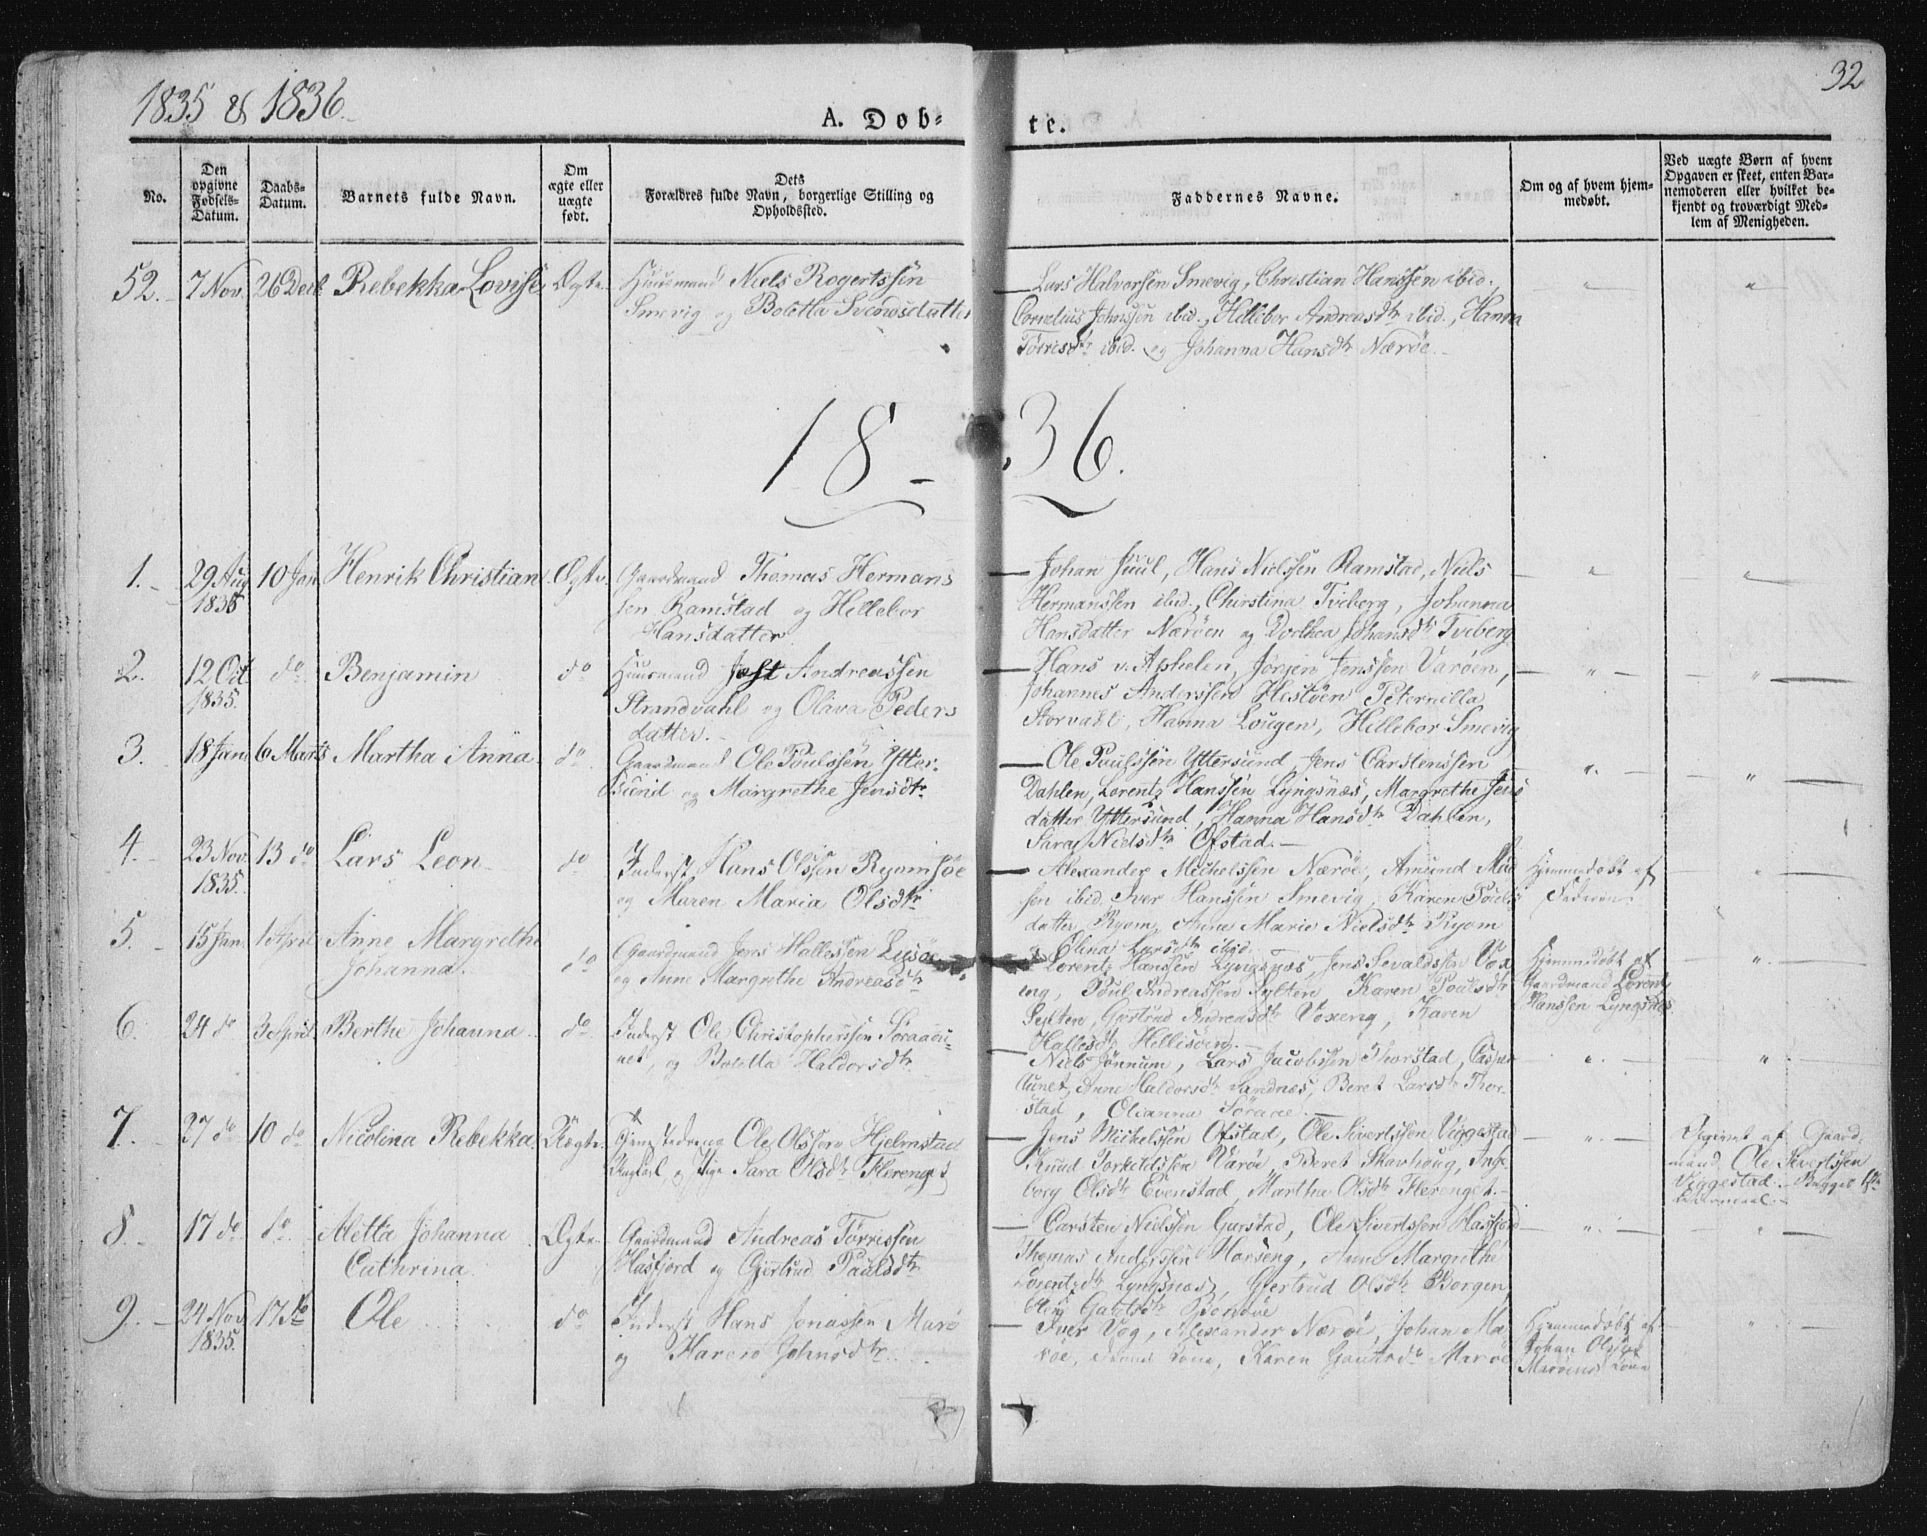 1835 & 1836.
32
A. Dob-
te.
No.
Den opgivne Fødsels-Datum.
Daabs-Datum.
Barnets fulde Navn.
Om ægte eller uægte født.
Dets Forældres fulde Navn, borgerlige Stilling og Opholdssted.
Faddernes Navne.
Om og af hvem hjem-medøbt.
Ved uægte Børn af hvem Opgaven er skeet, enten Bar-nemoderen eller hvilket be-kjendt og troværdigt Med-lem af Menigheden.
52. 7 Nov. 26 Decb. Rebekka Lovise Ægte Huusmand Niels Rogertssen
Smevig og Boletta Svendsdatter
Lars Halvorsen Smevig, Christian Hanssen ibid.,
Cornelius Johnssen ibid., Hillebor Andreasdtr ibid., Hanna
Torrisdtr ibid. og Johanna Hansdtr Nærøe.
18-36.
1. 29 Aug 1835 10 Jan Henrik Christian Ægte Gaardmand Thomas Hermans
sen Ramstad og Hillebor
Hansdatter
Johan Juul, Hans Nielssen Ramstad, Niels
Hermanssen ibid., Christina Tviberg, Johanna
Hansdatter Nærøen og Dorthea Johansdtr Tviberg
2. 12 Oct 1835. do Benjamin do Huusmand Andreassen
Strandvahl og Oliva Peders
datter.
Hans v. Aphelen, Jørgen Jenssen Varøen,
Johannes Anderssen Hestøen Peternilla
Storvahl, Hanna Lougen, Hillebor Smevig
3. 18 Jan 6 Marts Martha Anna do Gaardmand Ole Poulssen Ytter-
sund og Margrethe Jensdtr
Ole Paulssen Yttersund, Jens Carstenssen
Dahlen, Lorentz Hanssen Lyngsnæs, Margrethe Jens
datter Yttersund, Hanna Hansdtr Dahlen,
Sara Nielsdtr Ofstad.
4. 23 Nov. 1835. 13 do Lars Leon do Inderst Hans Olssen Ryumsøe
og Maren Maria Olsdtr
Alexander Michelssen Nærøe, Amund
sen ibid. Iver Hanssen Smevig, Karen Pouls
datter Ryom, Anna Marie Nielsdtr Ryom
Elina Larsdtr ibid.
Hjemmedøbt af
Faderen.
5. 15 Jan. 1 April Anne Margrethe
Johanna. do Gaardmand Jens Hallessen
og Anne Margrethe Andreasdtr
Lorentz Hanssen Lyngsnæs, Jens Sevaldssen Vox
eng, Poul Andreassen Sylten Karen Poulsdtr
Sylten, Gertrud Andreasdtr Voxeng, Karen
Hallesdtr Hellisøen.
Hjemmedøbt af
Gaardmand Lorentz
Hanssen Lyngsnæs
6. 24 do 3 April Berthe Johanna do Inderst Ole Christopherssen Søraau-
net, og Boletta Haldorsdtr
Niels Jønnum, Lars Jacobssen Thorstad, Casper
Aunet, Anne Haldorsdtr Sandnæs, Beret Larsdtr Thor-
stad, Olianna Søraae.
7. 27 do 10 do Nicolina Rebekka Uægte Ole Olssen Hjelmstad
og Pige Sara Olsdtr
Jens Michelssen Ofstad, Ole Sivertssen Viggestad
Knud Torkildssen Varøe, Beret Skavhoug, Inge
borg Olsdtr Evenstad, Martha Olsdtr Flerenget.
Opgivet af Gaard-
mand Ole Sivertssen
Viggestad.
8. 17 do do Aletta Johanna
Cathrina Ægte Gaardmand Andreas Torrissen
Hasfjord og Gjertrud Paulsdtr
Carsten Nielssen Garstad, Ole Sivertssen Hasfjord
Thomas Anderssen Horseng, Anne Margrethe
Lorentzdtr Lyngsnæs, Gjertrud Olsdtr Borgen
9. 24 Nov 1835. 17 do Ole do Inderst Hans Jonassen Marø
og Haren Johnsdtr
Iver Vog, Alexander Nærøe, Johan Ma-
røe, Karen Marøe
Hjemmedøbt af
Johan